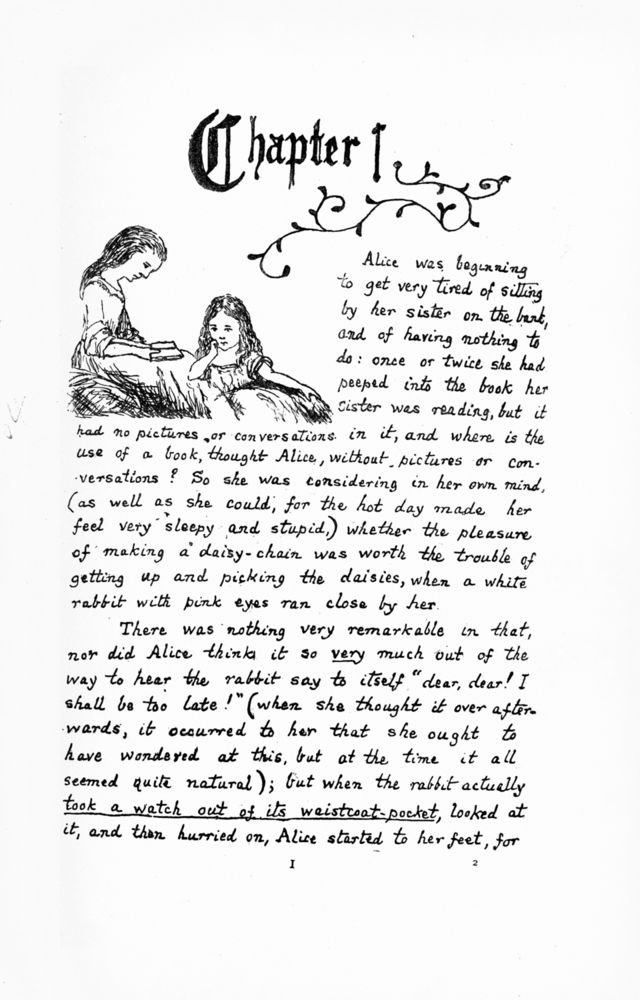 Chapter I
Alice was beginning
to get very tired of sitting
by her sister on the bank,
and of having nothing to
do: once or twice she had
peeped into the book her
sister was reading, but it
had no pictures or conversations in it, and where is the
use of a book, thought Alice, without pictures or con-
-versations? So she was considering in her own mind,
(as well as she could, for the hot day made her
feel very sleepy and stupid,) whether the pleasure
of making a daisy-chain was worth the trouble of
getting up and picking the daisies, when a white
rabbit with pink eyes ran close by her.
There was nothing very remarkable in that,
nor did Alice think it so very much out of the
way to hear the rabbit say to itself "dear, dear! I
shall be too late!" (when she thought it over after-
-wards, it occurred to her that she ought to
have wondered at this, but at the time it all
seemed quite natural); but when the rabbit actually
took a watch out of its waistcoat-pocket, looked at
it, and then hurried on, Alice started to her feet, for
1 2